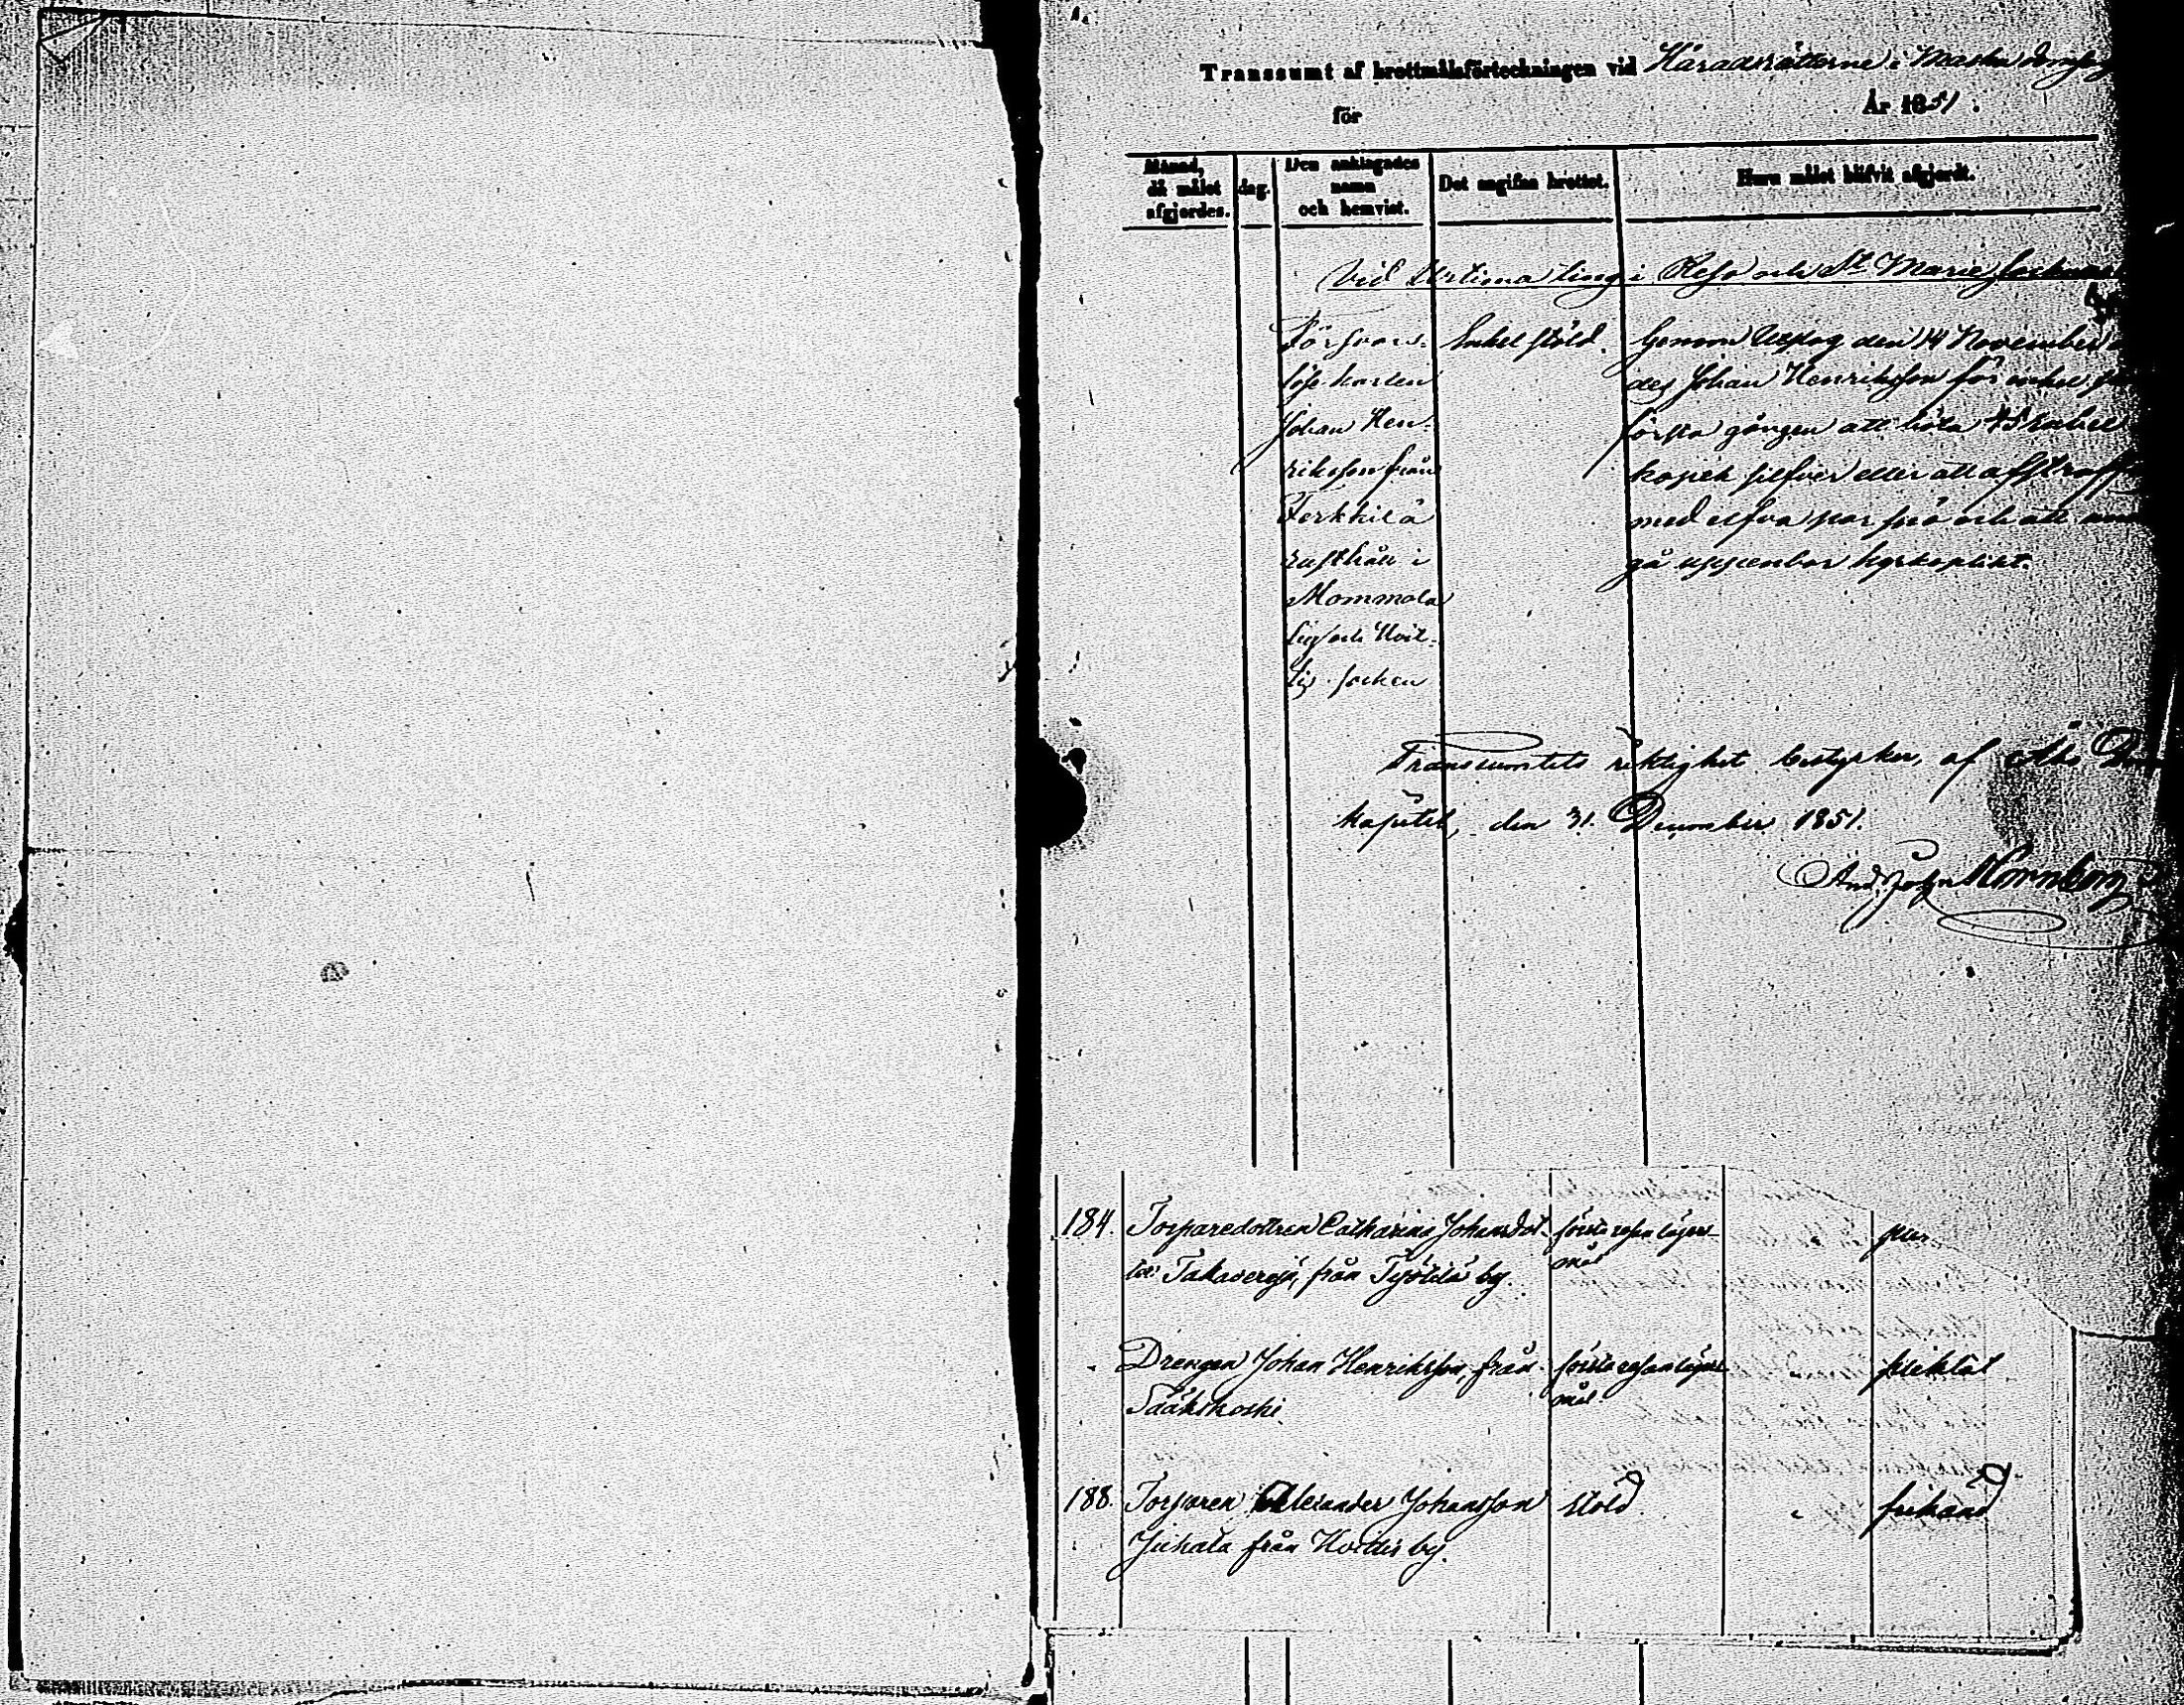 Transsumt af brottmålsförteckningen vid Häradsrätterne i Masku
för År 1851.
Månad, då målet afgjordes.
dag.
Den anklagades namn och hemvist.
Det angifna brottet.
Huru målet blifvit afgjordt.
Vid Urtima ting i Reso och St Marie
Försvars-
löse karlen
Johan Hen-
riksson från
Ferkkilä
rusthåll i
Mommola
by och
socken
Enkel stöld.
Genom Utslag den 14 November
des Johan Henriksson för enkel
första gången att böta 45 rubel
kopek silfver eller att afstraff
med elfva par spö och att
gå uppenbar kyrkoplikt.
Transsumtets riktighet bestyrker, af Åbo
kapitel, den 31. December 1851.
184. Torparedottren Catharina Johansdot-
ter Takavergi, från Työtilä by.
första resan lägers-
mål
Drengen Johan Henriksson, från
Sääkskoski
första resan lägers-
mål
frikänd
188. Torparen Alexander Johansson
från by.
stöld
frikänd